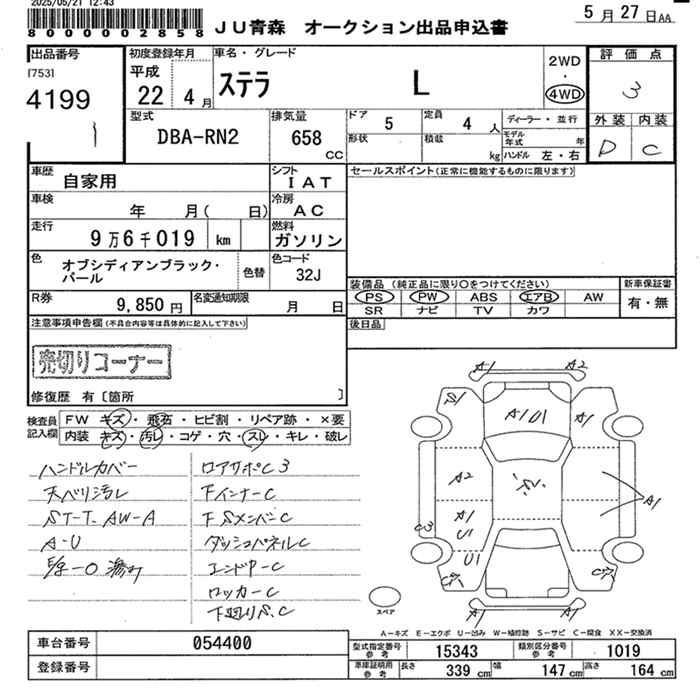 2025/05/21 12:43
8000002858
JU青森 オークション出品申込書
5月27日AA
出品番号
[753]
4199
1
初度登録年月
平成
22 4月
車名・グレード
ステラ L
2WD
・
4WD
評価点
3
外装 内装
D C
型式
DBA-RN2
排気量
658
CC
ドア
5
定員
4人
形状
積載
kg
ディーラー・並行
モデル年式 年
ハンドル 左・右
車歴
自家用
シフト
IAT
車検
年 月( 日)
冷房
AC
走行
9万6千019 km
燃料
ガソリン
色
オブシディアンブラック・パール
色替
色コード
32J
セールスポイント(正常に機能するものに限ります)
装備品(純正品に限り○をつけてください)
PS PW ABS エアB AW
SR ナビ TV カワ
新車保証書
有・無
後日品
R券
9,850円
名変通知期限
月 日
注意事項申告欄(不具合内容等は具体的に記入して下さい)
売切りコーナー
修復歴 有〔箇所 〕
検査員記入欄
FW キズ・飛石・ヒビ割・リペア跡・×要
内装 キズ・汚レ・コゲ・穴・スレ・キレ・破レ
ハンドルカバー
天ベリ汚レ
ST-T. AW-A
A-U
ロアサポC3
下インナーC
下SメンバーC
ダッシュパネルC
エンドP-C
ロッカーC
下廻りS.C
A1 A2
S1 A1U1 A1
A2 S2
A1 U1 A1
C3
U1
A1 A1
スペア
A-キズ E-エクボ U-凹み W-補修跡 S-サビ C-腐食 XX-交換済
車台番号
054400
登録番号
型式指定番号 参考
15343
類別区分番号 参考
1019
車庫証明用 参考
長さ 339 cm
幅 147 cm
高さ 164 cm